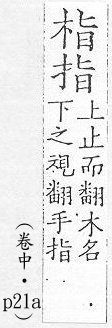 栺指
上止而翻木名
下之視翻手指
(卷中・p21a)